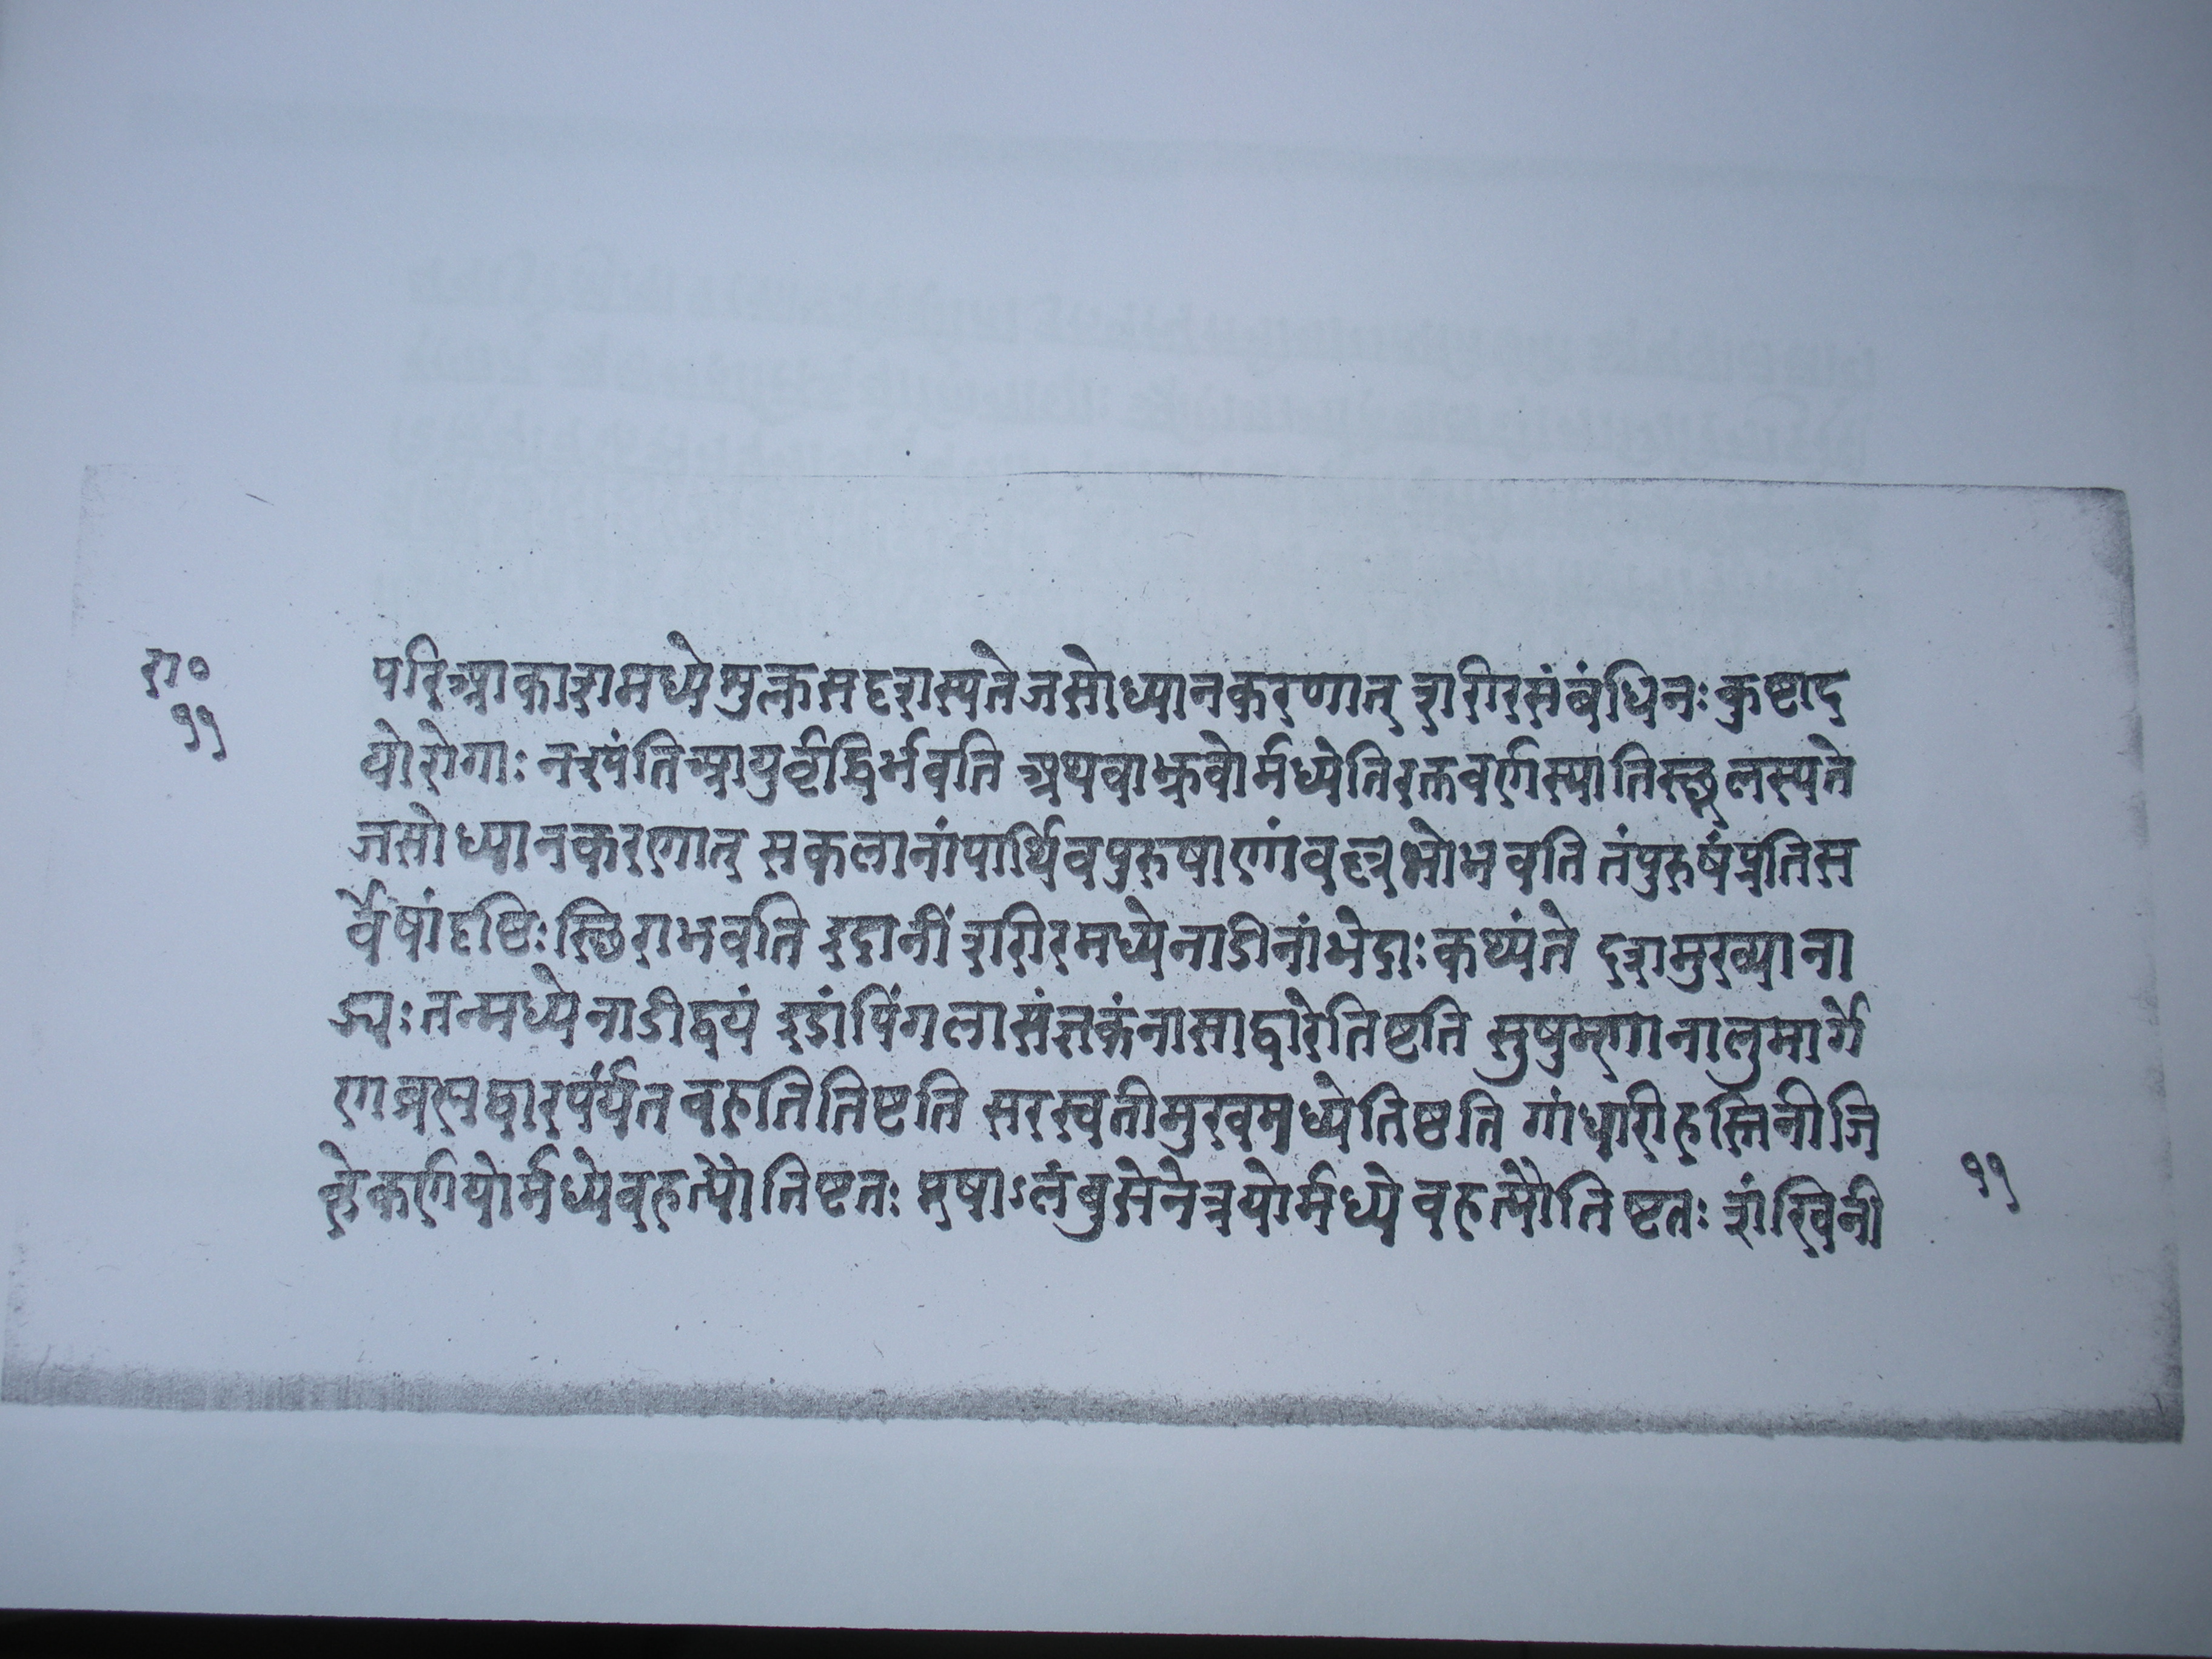 रा०
११
परिआकाशमध्येशुक्लसदृशस्यतेजसोध्यानकरणात् शरीरसंबंधिनः कुष्टाद
योरोगाः नश्यंतिआयुर्वृद्धिर्भवति अथवाभ्रुवोर्मध्येतिरक्तवर्णस्यातिस्छूलस्यते
जसोध्यानकरणात् सकलानांपार्थिवपुरुषाणांवल्लभोभवति तंपुरुषंप्रतिस
र्वेषांदृष्टिःस्छिराभवति इदानीं शरीरमध्येनाडीनांभेदाःकथ्यंते दशमुख्याना
ड्यःतन्मध्येनाडीद्वयं इडांपिंगलासंज्ञकंनासाद्वारेतिष्टति सुषुम्णानालुमार्गे
णब्रह्मद्वारपर्यंत वहतितिष्टति सरस्वतीमुखमध्येतिष्ठति गांधारीहस्तिनीजि
ह्वेकर्णयोर्मध्येवहत्योतिष्टतः पूषाऽलंबुसेनेत्रयोर्मध्ये वहत्यौतिष्टतः शंखिनी
११